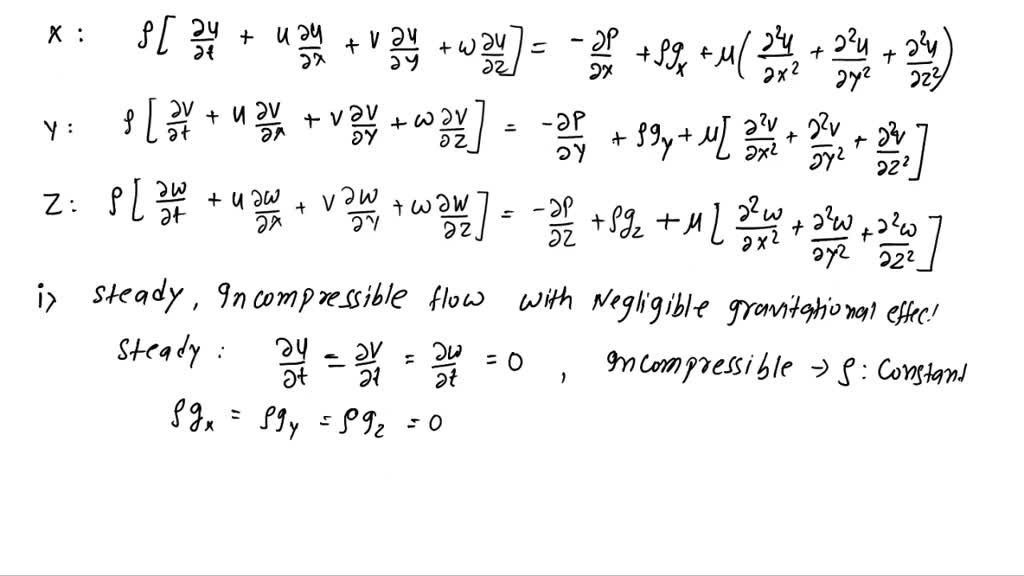 X: ρ[∂u/∂t + u ∂u/∂x + v ∂u/∂y + ω ∂u/∂z] = -∂P/∂x + ρgₓ + μ(∂²u/∂x² + ∂²u/∂y² + ∂²u/∂z²)
Y: ρ[∂v/∂t + u ∂v/∂x + v ∂v/∂y + ω ∂v/∂z] = -∂P/∂y + ρg_y + μ[∂²v/∂x² + ∂²v/∂y² + ∂²v/∂z²]
Z: ρ[∂ω/∂t + u ∂ω/∂x + v ∂ω/∂y + ω ∂ω/∂z] = -∂P/∂z + ρg_z + μ[∂²ω/∂x² + ∂²ω/∂y² + ∂²ω/∂z²]
i> Steady, Incompressible flow with Negligible gravitational effect
Steady: ∂u/∂t = ∂v/∂t = ∂ω/∂t = 0, Incompressible → ρ: Constant
ρgₓ = ρg_y = ρg_z = 0